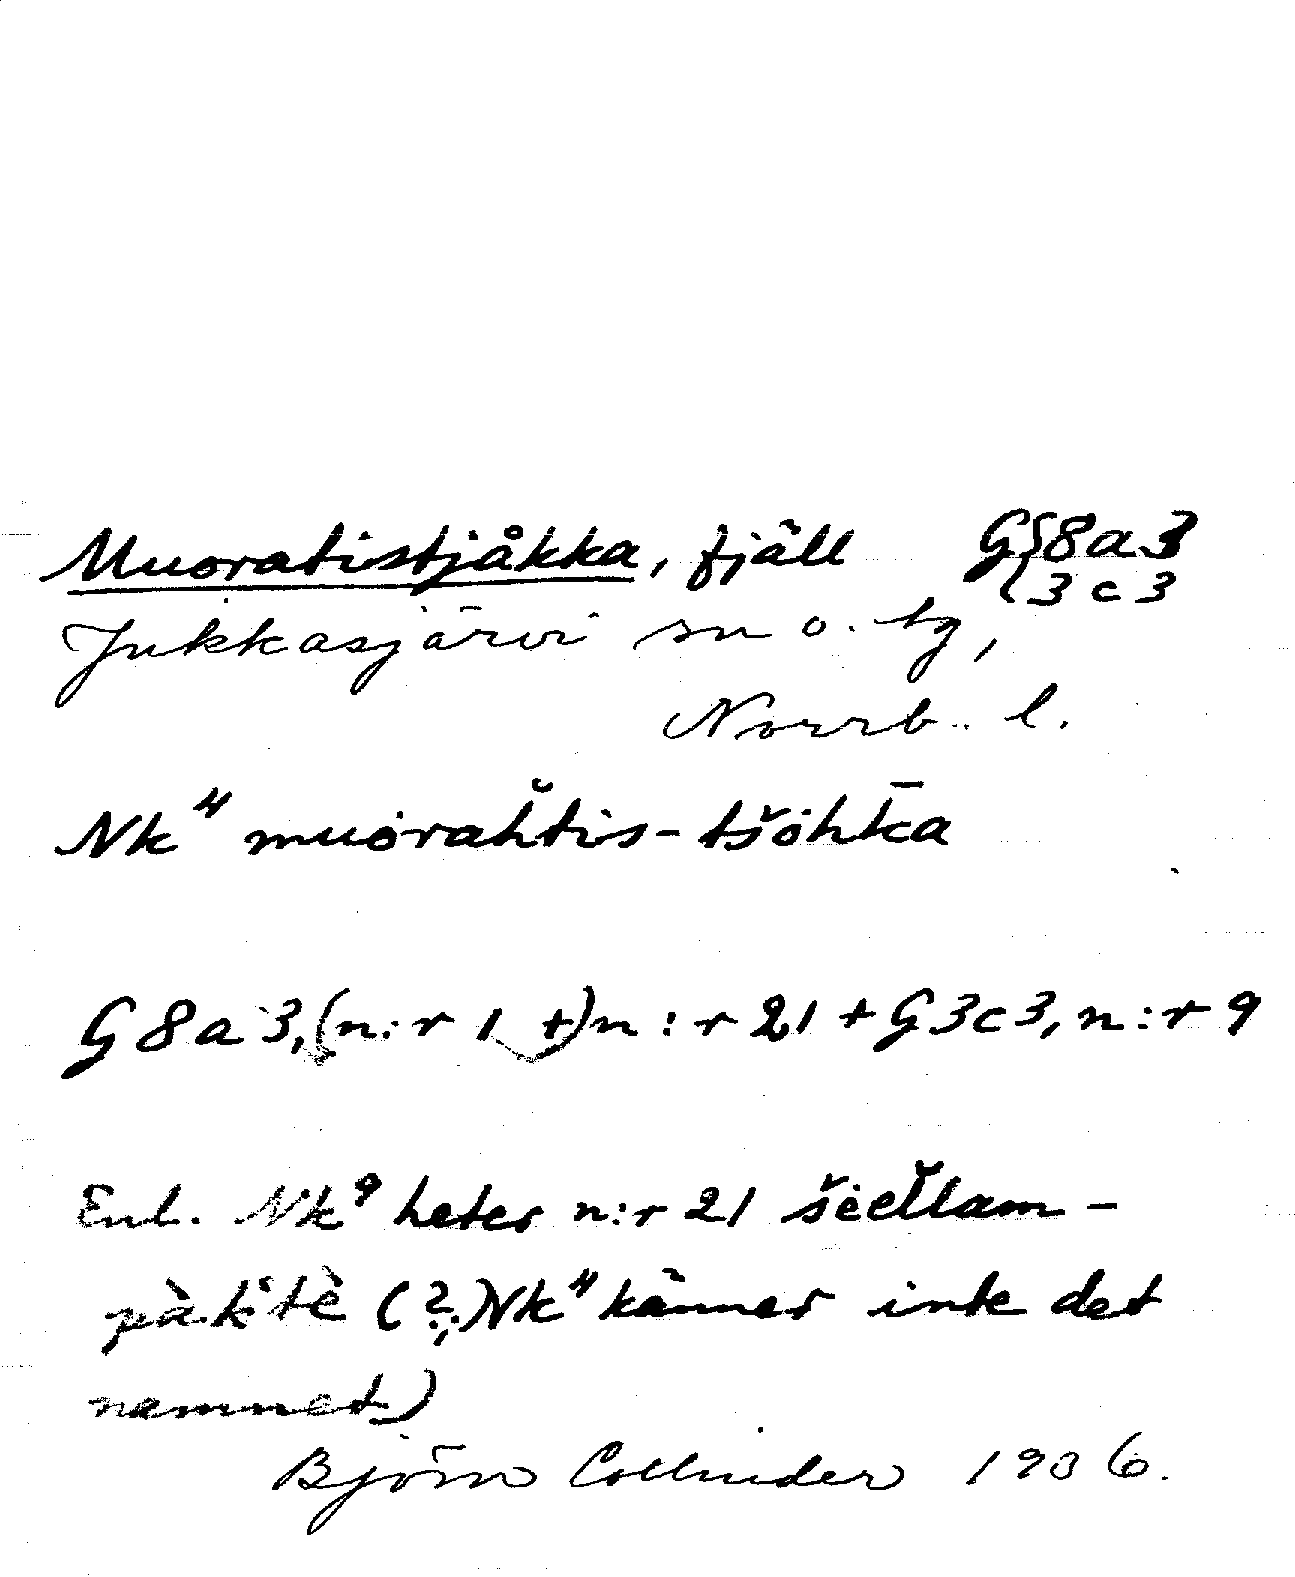 Muoratistjåkka, fjäll G{8a3
3c3
Jukkasjärvi sn o. tg,
Norrb. l.
Nk⁴ muorȧȟtis-tšȯhk̄a
G8a3, (n:r 1 +) n:r 21 + G3c3, n:r 9
Enl. Nk⁹ heter n:r 21 šiėťlam-
pàkʻtè (?; Nk⁴ känner inte det
namnet)
Björn Collinder 1936.